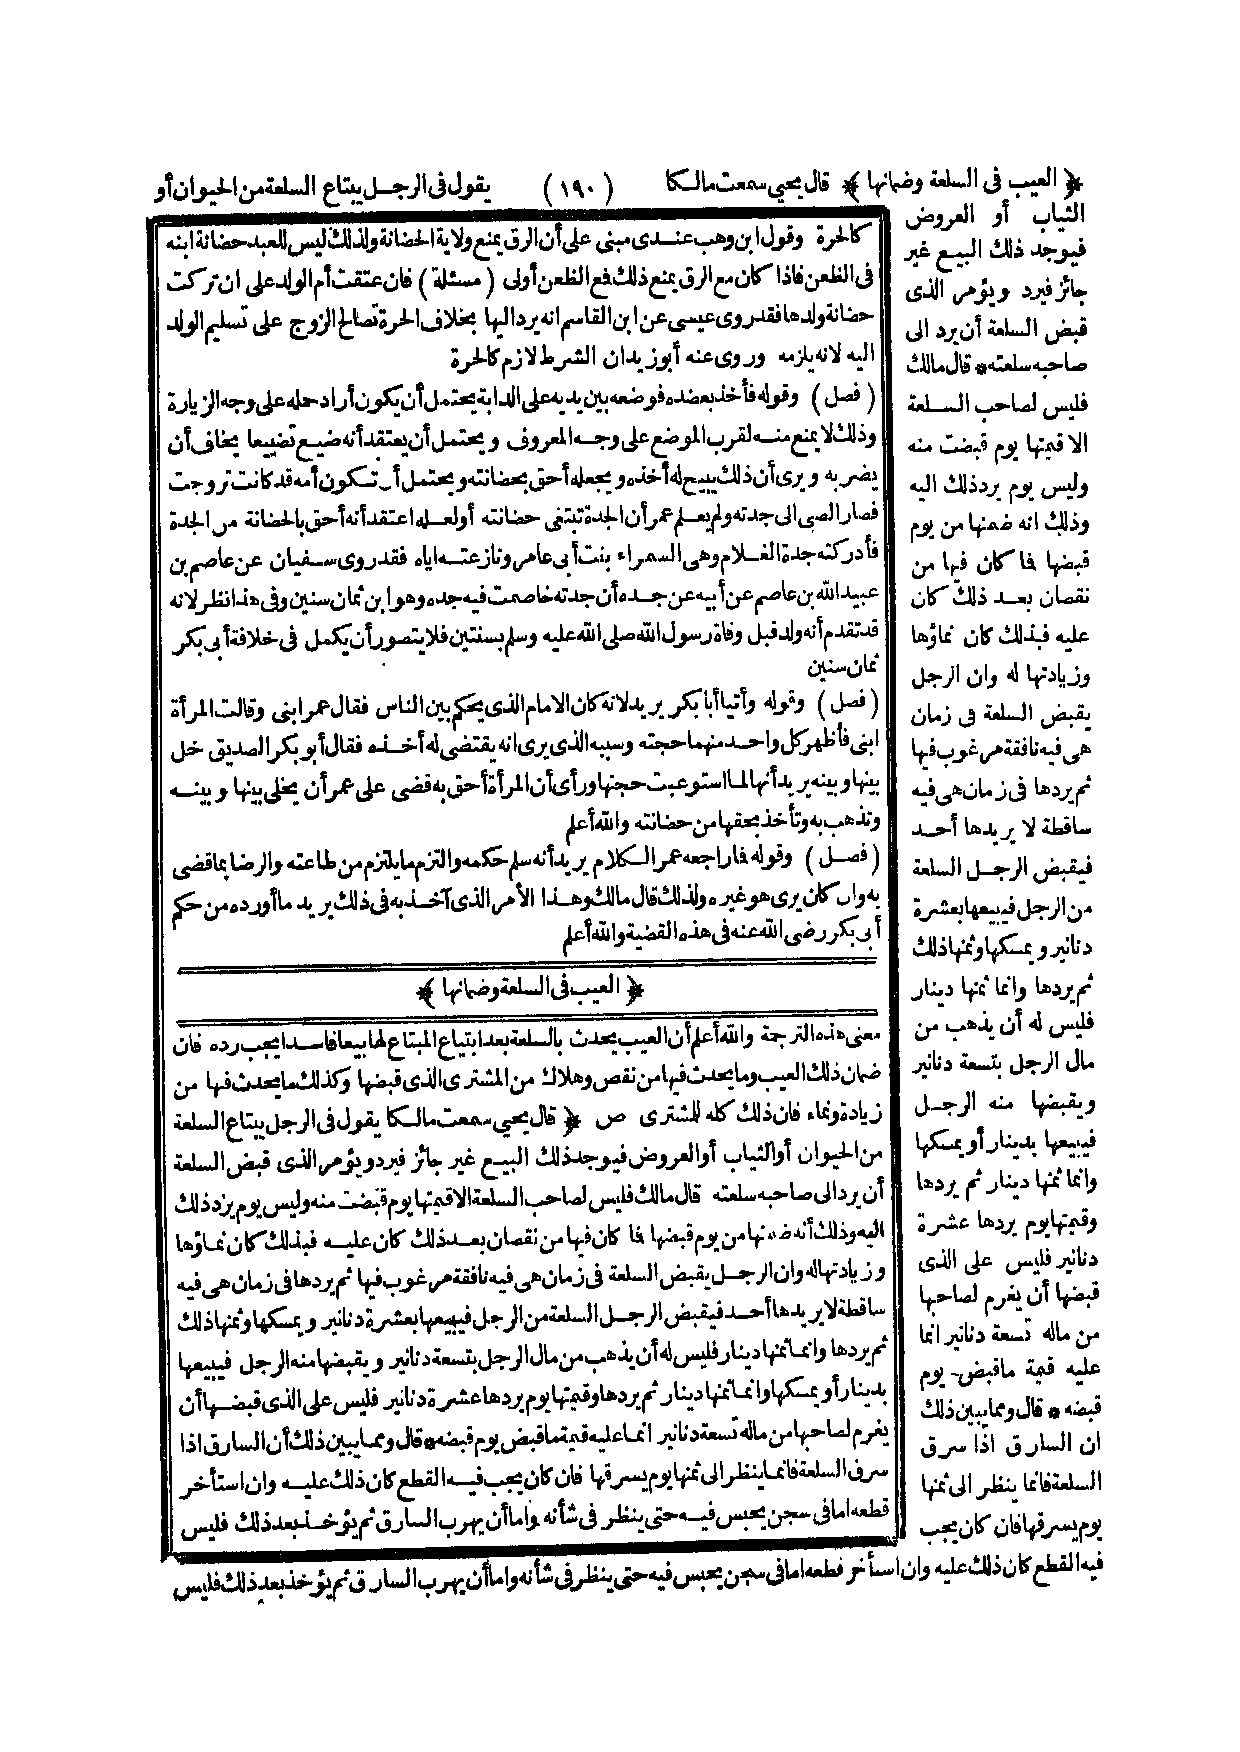 ﴿ العيب فى السلعة وضمانها ﴾ قال يحيى سمعت مالكا (١٩٠) يقول فى الرجل يبتاع السلعة من الحيوان أو
الثياب أو العروض
فيوجد ذلك البيع غير
جائز فيرد ويؤمر الذى
قبض السلعة أن يرد الى
صاحبه سلعته * قال مالك
فليس لصاحب السلعة
الا قيمتها يوم قبضت منه
وليس يوم يرد ذلك اليه
وذلك انه ضمنها من يوم
قبضها فما كان فيها من
نقصان بعد ذلك كان
عليه فبذلك كان نماؤها
وزيادتها له وان الرجل
يقبض السلعة فى زمان
هى فيه نافقة مرغوب فيها
ثم يردها فى زمان هى فيه
ساقطة لا يريدها أحد
فيقبض الرجل السلعة
من الرجل فيبيعها بعشرة
دنانير ويمسكها وثمنها ذلك
ثم يردها وانما ثمنها دينار
فليس له أن يذهب من
مال الرجل بتسعة دنانير
ويقبضها منه الرجل
فيبيعها بدينار أو يمسكها
وانما ثمنها دينار ثم يردها
وقيمتها يوم يردها عشرة
دنانير فليس على الذى
قبضها أن يغرم لصاحبها
من ماله تسعة دنانير انما
عليه قيمة ما قبض يوم
قبضه * قال ومما يبين ذلك
ان السارق اذا سرق
السلعة فانما ينظر الى ثمنها
يوم يسرقها فان كان يجب
فيه القطع كان ذلك عليه وان استأخر قطعه اما فى سجن يحبس فيه حتى ينظر فى شأنه واما أن يهرب السارق ثم يؤخذ بعد ذلك فليس
كالحرة وقول ابن وهب عندى مبنى على أن الرق يمنع ولاية الحضانة ولذلك ليس للعبد حضانة ابنه
فى الظعن فاذا كان مع الرق يمنع ذلك فمع الظعن أولى (مسئلة) فان عتقت أم الولد على ان تركت
حضانة ولدها فقد روى عيسى عن ابن القاسم انه يرد اليها بخلاف الحرة تصالح الزوج على تسليم الولد
اليه لانه يلزمه وروى عنه أبو زيد ان الشرط لازم كالحرة
(فصل) وقوله فأخذ بعضده فوضعه بين يديه على الدابة يحتمل أن يكون أراد حمله على وجه الزيارة
وذلك لا يمنع منه لقرب الموضع على وجه المعروف ويحتمل أن يعتقد أنه ضيع تضييعا يخاف أن
يضر به ويرى أن ذلك يبيح له أخذه ويجعله أحق بحضانته ويحتمل أن تكون أمه قد كانت تزوجت
فصار الصبى الى جدته ولم يعلم عمر أن الجدة تبتغى حضانته أو لعله اعتقد أنه أحق بالحضانة من الجدة
فأدركته جدة الغلام وهى السمراء بنت أبى عامر ونازعته اياه فقد روى سفيان عن عاصم بن
عبيد الله بن عاصم عن أبيه عن جده أن جدته خاصمت فيه جده وهو ابن ثمان سنين وفى هذا نظر لانه
قد تقدم أنه ولد قبل وفاة رسول الله صلى الله عليه وسلم بسنتين فلا يتصور أن يكمل فى خلافة أبى بكر
ثمان سنين
(فصل) وقوله وأتيا أبا بكر يريد لانه كان الامام الذى يحكم بين الناس فقال عمر ابنى وقالت المرأة
ابنى فأظهر كل واحد منهما حجته وسببه الذى يرى انه يقتضى له أخذه فقال أبو بكر الصديق خل
بينها وبينه يريد أنها لما استوعبت حجتها ورأى أن المرأة أحق به قضى على عمر أن يخلى بينها وبينه
وتذهب به وتأخذ بحقها من حضانته والله أعلم
(فصل) وقوله فما راجعه عمر الكلام يريد أنه سلم حكمه والتزم ما يلتزم من طاعته والرضا بما قضى
به وان كان يرى هو غيره ولذلك قال مالك وهذا الأمر الذى آخذ به فى ذلك يريد ما أورده من حكم
أبى بكر رضى الله عنه فى هذه القضية والله أعلم
﴿ العيب فى السلعة وضمانها ﴾
معنى هذه الترجمة والله أعلم أن العيب يحدث بالسلعة بعد ابتياع المبتاع لها بيعا فاسدا يجب رده فان
ضمان ذلك العيب وما يحدث فيها من نقص وهلاك من المشترى الذى قبضها وكذلك ما يحدث فيها من
زيادة ونماء فان ذلك كله للمشترى ص ﴿ قال يحيى سمعت مالكا يقول فى الرجل يبتاع السلعة
من الحيوان أو الثياب أو العروض فيوجد ذلك البيع غير جائز فيرد ويؤمر الذى قبض السلعة
أن يرد الى صاحبه سلعته قال مالك فليس لصاحب السلعة الا قيمتها يوم قبضت منه وليس يوم يرد ذلك
اليه وذلك أنه ضمنها من يوم قبضها فما كان فيها من نقصان بعد ذلك كان عليه فبذلك كان نماؤها
وزيادتها له وان الرجل يقبض السلعة فى زمان هى فيه نافقة مرغوب فيها ثم يردها فى زمان هى فيه
ساقطة لا يريدها أحد فيقبض الرجل السلعة من الرجل فيبيعها بعشرة دنانير ويمسكها وثمنها ذلك
ثم يردها وانما ثمنها دينار فليس له أن يذهب من مال الرجل بتسعة دنانير ويقبضها منه الرجل فيبيعها
بدينار أو يمسكها وانما ثمنها دينار ثم يردها وقيمتها يوم يردها عشرة دنانير فليس على الذى قبضها أن
يغرم لصاحبها من ماله تسعة دنانير انما عليه قيمة ما قبض يوم قبضه * قال ومما يبين ذلك أن السارق اذا
سرق السلعة فانما ينظر الى ثمنها يوم يسرقها فان كان يجب فيه القطع كان ذلك عليه وان استأخر
قطعه اما فى سجن يحبس فيه حتى ينظر فى شأنه واما أن يهرب السارق ثم يؤخذ بعد ذلك فليس